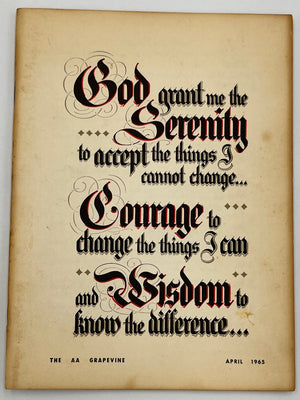 God grant me the
Serenity
to accept the things I
cannot change...
Courage to
change the things I can
and Wisdom to
know the difference...
THE AA GRAPEVINE
APRIL 1965